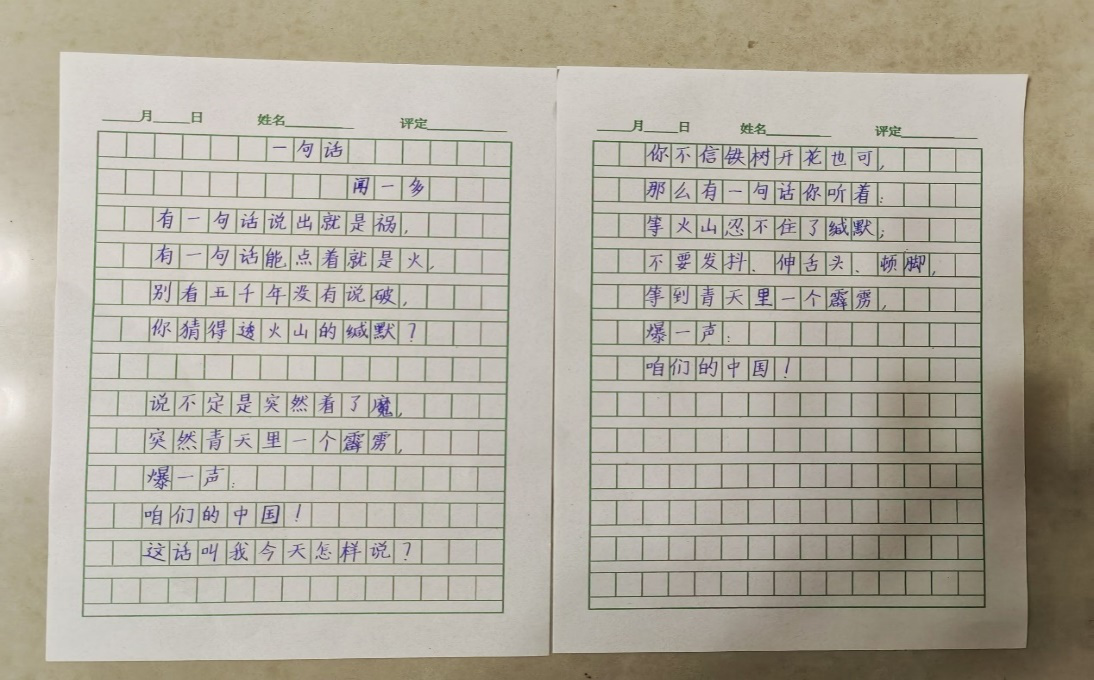 ____月____日 姓名________ 评定________
一句话
闻一多
有一句话说出就是祸,
有一句话能点着就是火,
别看五千年没有说破,
你猜得透火山的缄默?
说不定是突然着了魔,
突然青天里一个霹雳,
爆一声:
咱们的中国!
这话叫我今天怎样说?
____月____日 姓名________ 评定________
你不信铁树开花也可,
那么有一句话你听着:
等火山忍不住了缄默;
不要发抖、伸舌头、顿脚,
等到青天里一个霹雳,
爆一声:
咱们的中国!